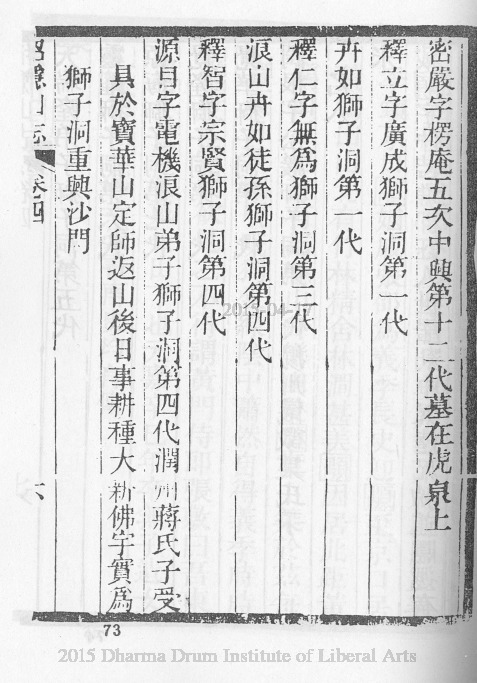 密嚴字楞庵五次中興第十二代墓在虎泉上
釋立字廣成獅子洞第一代
卉如獅子洞第一代
釋仁字無為獅子洞第三代
浪山卉如徒孫獅子洞第四代
釋智字宗賢獅子洞第四代
源日字電機浪山弟子獅子洞第四代潤州蔣氏子受
具於寶華山定師返山後日事耕種大新佛宇實為
獅子洞重興沙門
山志 卷四 六
73
2015 Dharma Drum Institute of Liberal Arts